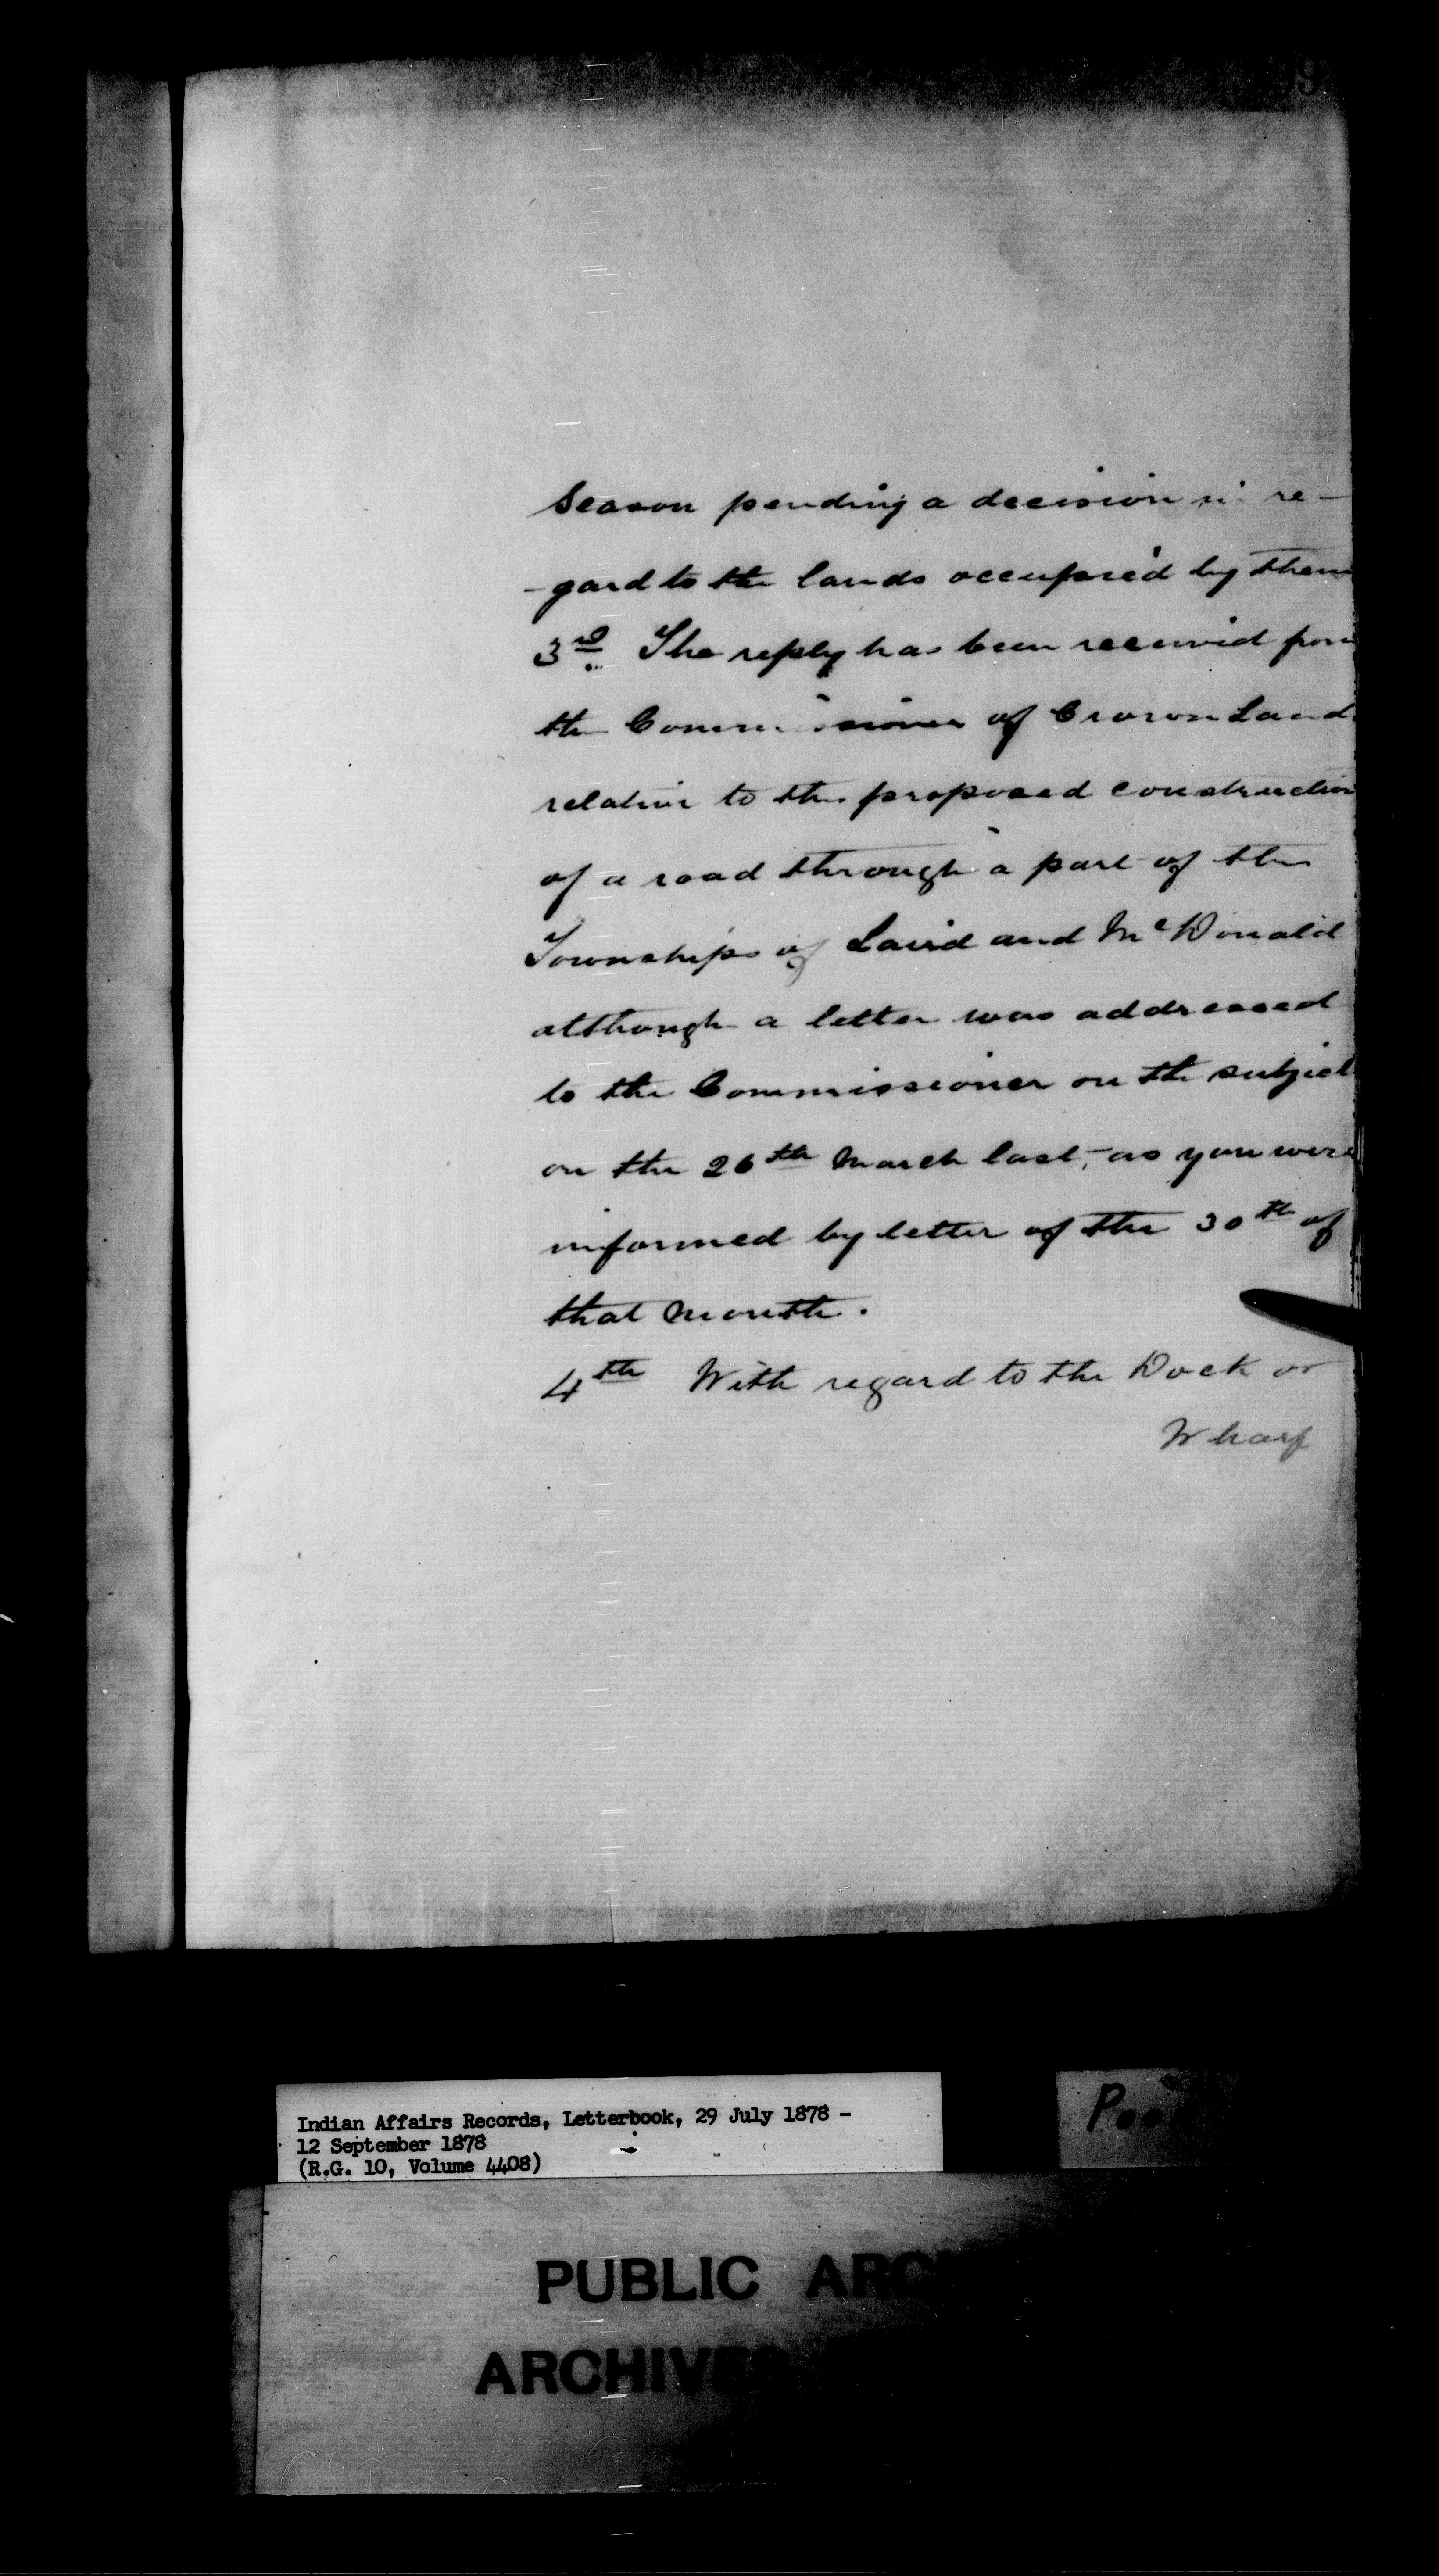 9
Season pending a decision in re-
-gard to the lands occupied by them
3rd. The reply has been received from
the Commissioner of Crown Land
relative to the proposed construction
of a road through a part of the
Townships of Laird and McDonald
although a letter was addressed
to the Commissioner on the subject
on the 26th March last, as you were
informed by letter of the 30th of
that month.
4th With regard to the Dock or
Wharf
Indian Affairs Records, Letterbook, 29 July 1878 -
12 September 1878
(R.G. 10, Volume 4408)
PUBLIC ARC
ARCHIVES